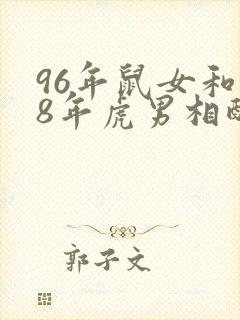 96年鼠女和
8年虎男相配
郭子文